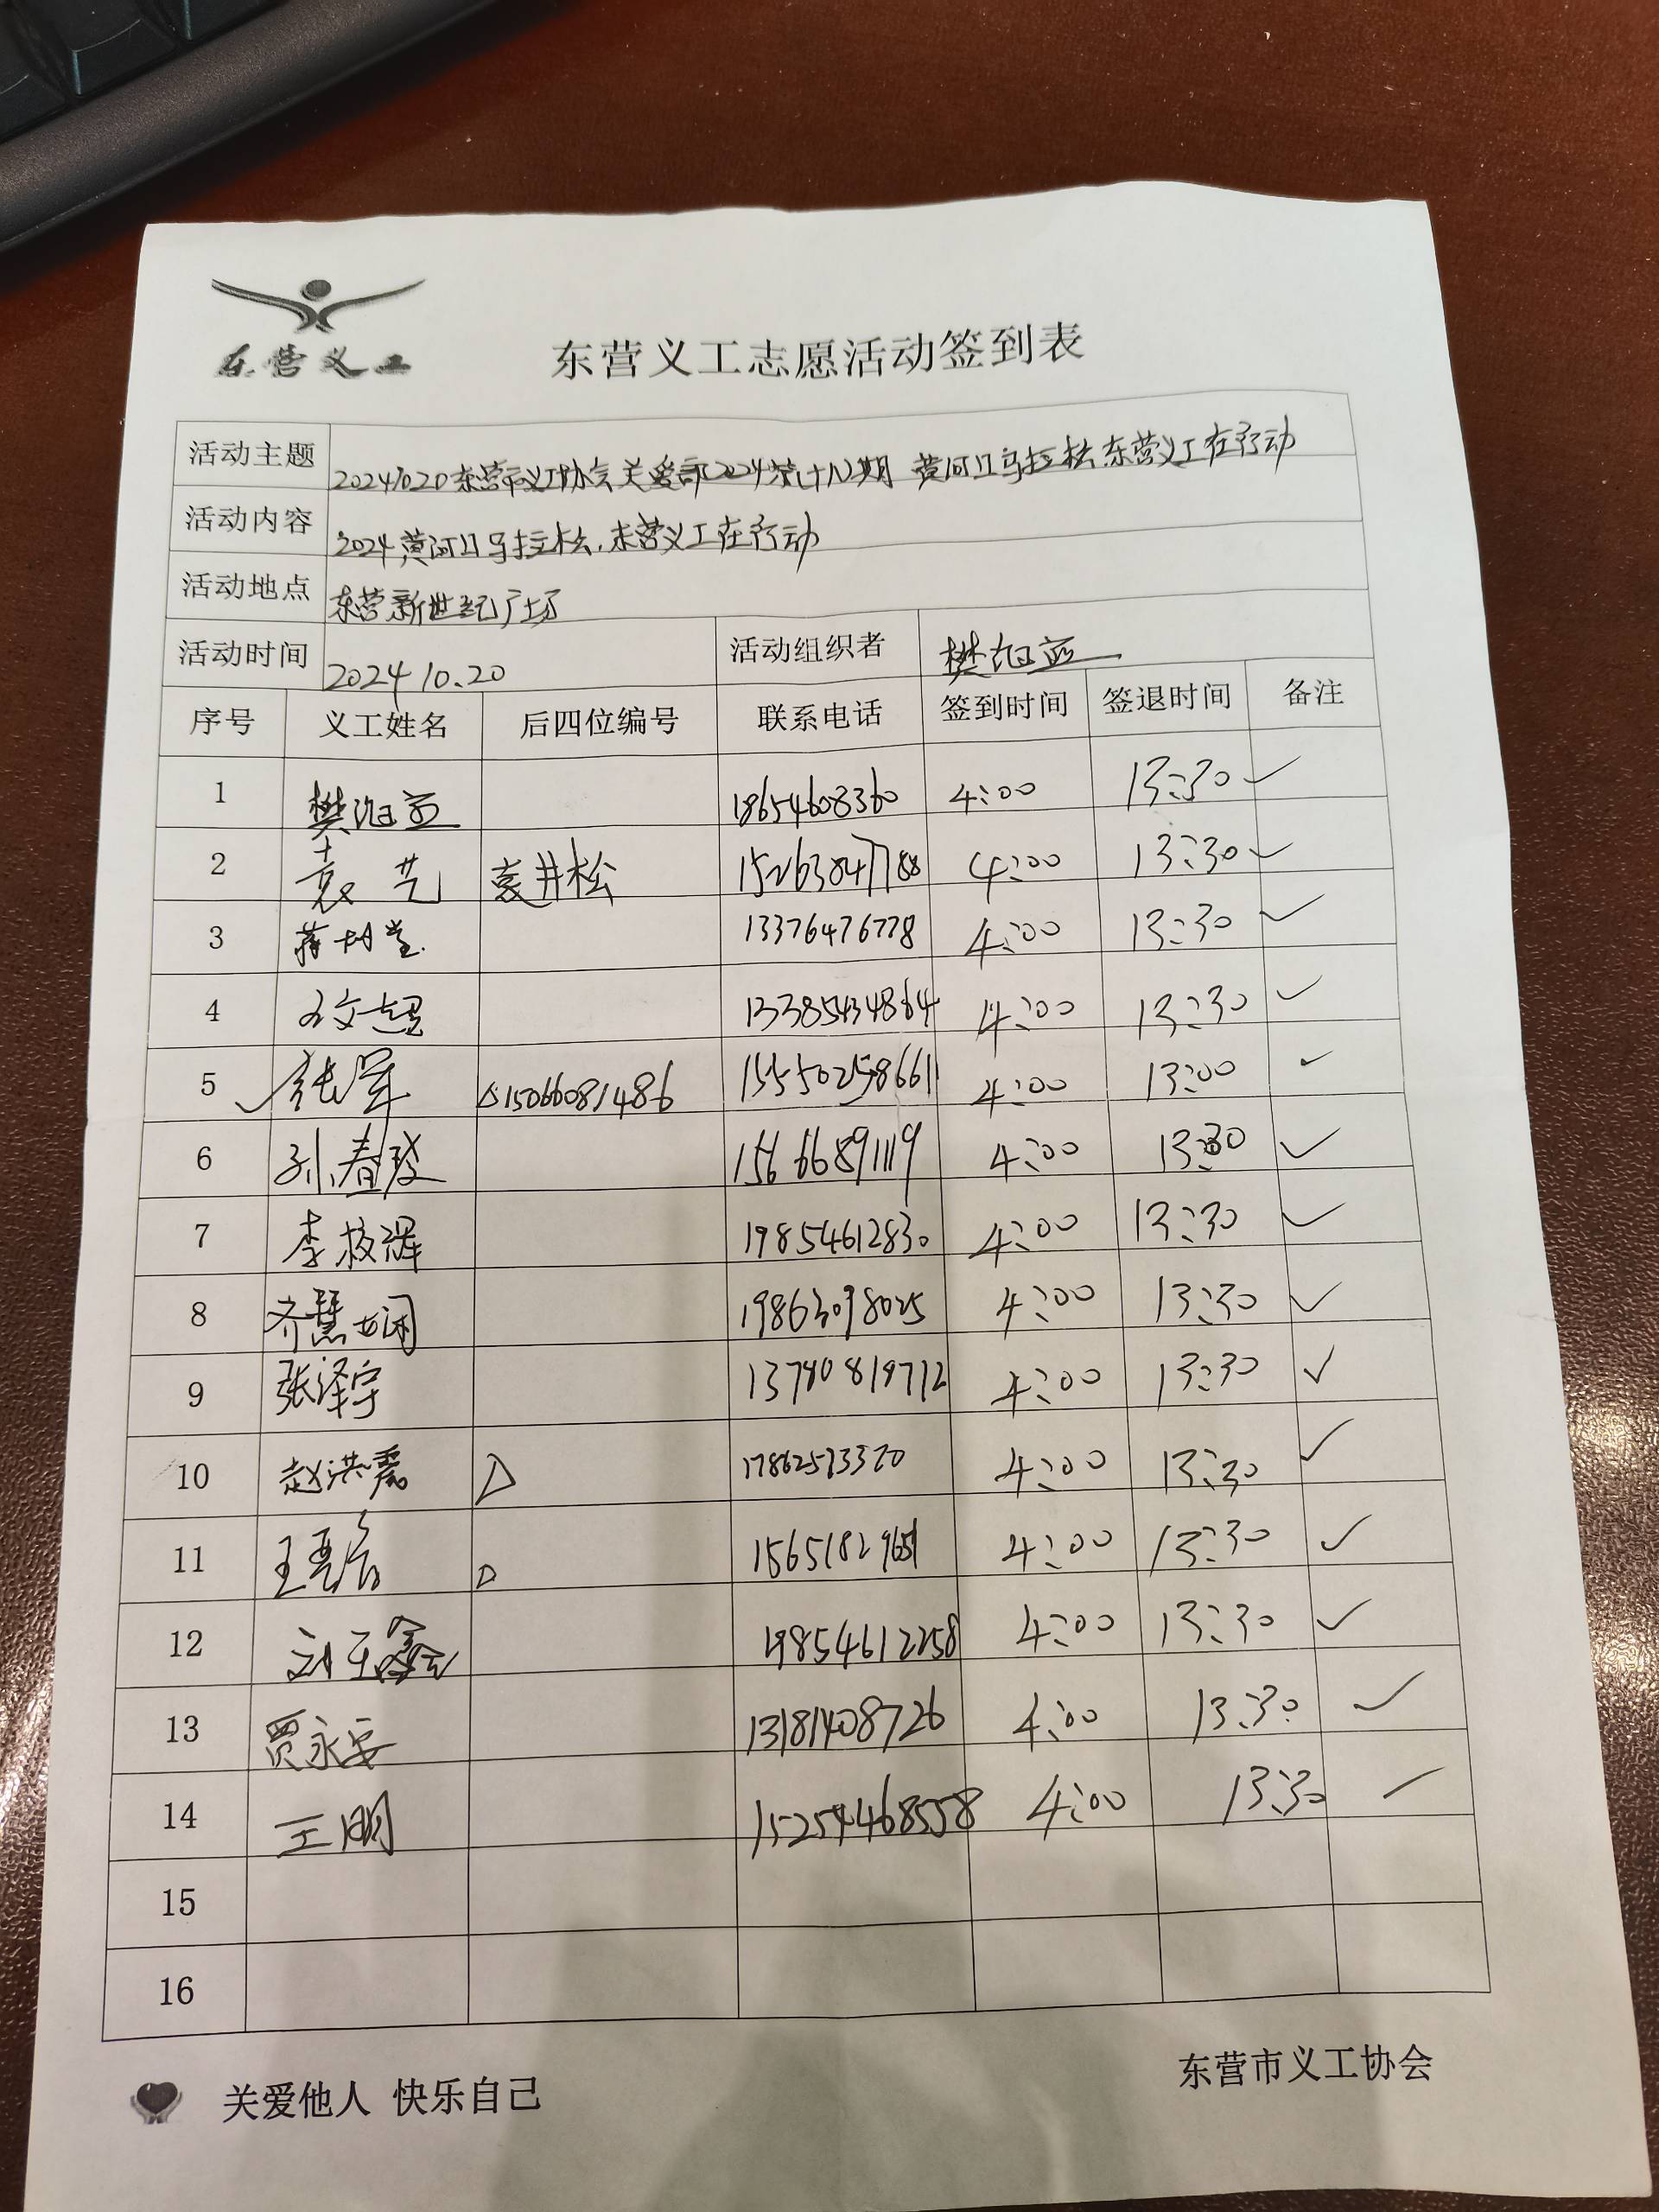 东营义工
东营义工志愿活动签到表
活动主题 20241020东营市义工协会关爱部2024第十八期 黄河口马拉松东营义工在行动
活动内容 2024黄河口马拉松,东营义工在行动
活动地点 东营新世纪广场
活动时间 2024 10.20 活动组织者 樊
序号 义工姓名 后四位编号 联系电话 签到时间 签退时间 备注
1 樊 18654608360 4:00 13:30 ✓
2 袁艺 袁井松 15263847788 4:00 13:30 ✓
3 13376476778 4:00 13:30 ✓
4 文超 4:00 13:30 ✓
5 ✓ 张军 △15066081486 15550258661 4:00 13:00 ✓
6 孙春 15666891119 4:00 13:30 ✓
7 李 19854612830 4:00 13:30 ✓
8 齐慧娴 19863098025 4:00 13:30 ✓
9 张泽宇 13780819712 4:00 13:30 ✓
10 赵洪震 △ 4:00 13:30 ✓
11 王 △ 4:00 13:30 ✓
12 刘 鑫 19854612258 4:00 13:30 ✓
13 贾永安 13181408726 4:00 13:30 ✓
14 王明 15254468558 4:00 13:30 ✓
15
16
关爱他人 快乐自己
东营市义工协会